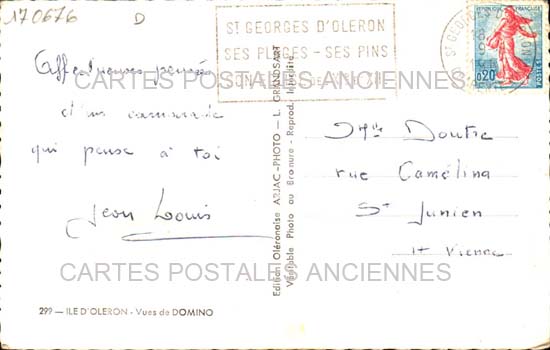 170676
D
ST GEORGES D'OLERON
SES PLAGES - SES PINS
0,20
Affectueuses pensées
d'un camarade
qui pense à toi
Jean Louis
Melle Doutre
rue Camélina
St Junien
Hte Vienne
Edition Oléronaise ARJAC-PHOTO - L. GRANDSART
Véritable Photo au Bromure - Reprod. Interdite
CARTES POSTALES ANCIENNES
CARTES POSTALES ANCIENNES
299 — ILE D'OLERON - Vues de DOMINO